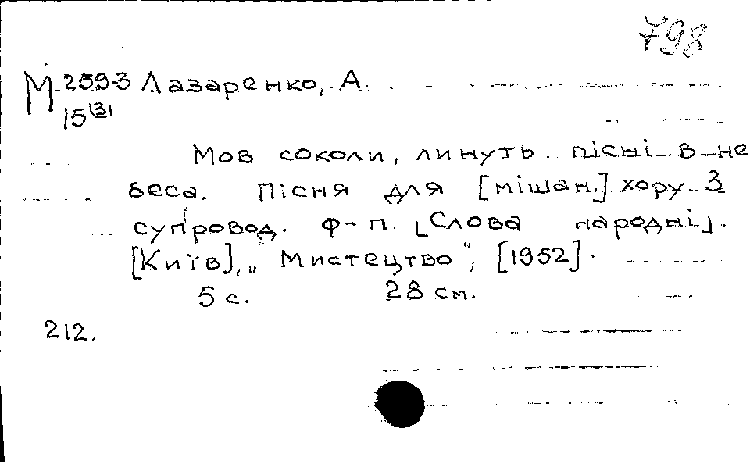 798
М 259-3 Лазаренко, А.
15(3)
Мов соколи, линуть пісні в не
беса. Пісня для [мішан.] хору з
супровод. ф-п. [Слова народні].
[Київ], „Мистецтво", [1952].
5 с. 28 см.
212.